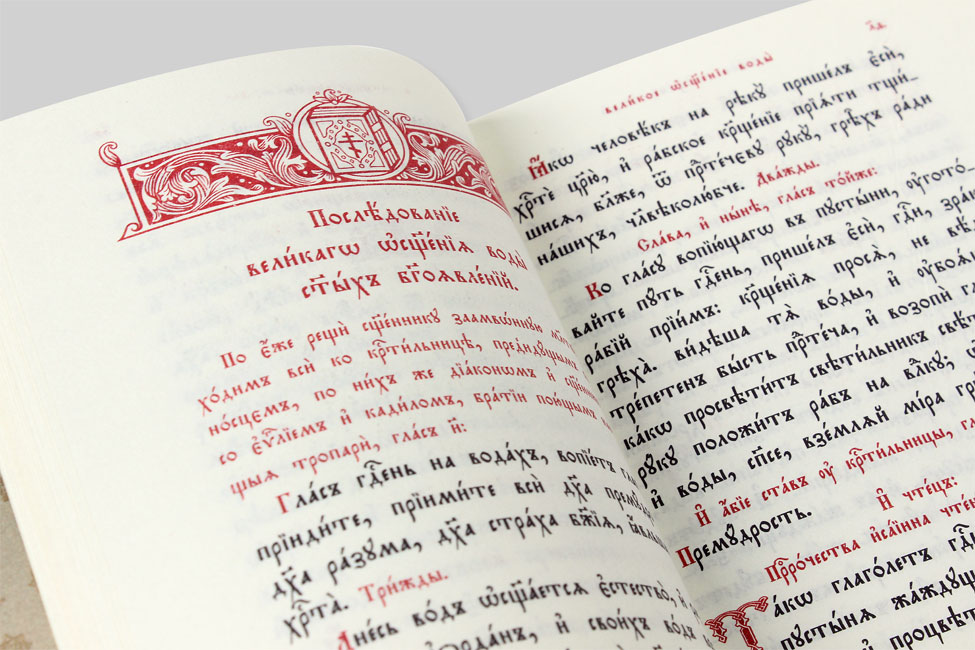 Послѣ́дованїе
вели́кагѡ ѡ҆сщ҃е́нїѧ воды̀
ст҃ы́хъ бг҃оѧвле́нїй.
По є҆́же рещѝ сщ҃е́ннику заамвѡ́нную
хо́димъ всѝ ко крⷭ҇ти́льницѣ, предиду́щымъ
но́сцемъ, по ни́хъ же дїа́кономъ и҆
со є҆ѵⷢ҇лїемъ и҆ кади́ломъ, бра́тїи пою́щымъ
щыѧ тропарѝ, гла́съ и҃:
Гла́съ гдⷭ҇ень на вода́хъ, вопїе́тъ
прїиди́те, прїими́те всѝ дх҃а
дх҃а ра́зума, дх҃а стра́ха бж҃їѧ,
хрⷭ҇та̀. Три́жды.
Дне́сь во́дъ ѡ҆сщ҃а́етсѧ є҆стество̀,
і҆ѻрда́нъ, и҆ свои́хъ во́дъ
лд
вели́кое ѡ҆сщ҃е́нїе воды̀
Ꙗ҆́кѡ человѣ́къ на рѣкꙋ̀ прише́лъ є҆сѝ,
хрⷭ҇тѐ цр҃ю̀, и҆ ра́бское крⷭ҇ще́нїе прїѧ́ти тщи-
шисѧ, бл҃же, ѿ прⷣте́чевꙋ рꙋкꙋ̀, грѣ̑хъ ра́ди
на́шихъ, чл҃вѣколю́бче. Два́жды.
Сла́ва, и҆ ны́нѣ, гла́съ то́йже:
Ко гла́сꙋ вопїю́щагѡ въ пꙋсты́ни, ᲂу҆гото-
вайте пꙋ́ть гдⷭ҇ень, прише́лъ є҆сѝ, гдⷭ҇и,
ра́бїй прїи́мъ: крⷭ҇ще́нїѧ просѧ̀, не
грѣха̀. ви́дѣша тѧ̀ во́ды, и҆
тре́петенъ бы́сть прⷣте́ча, и҆ возопѝ
ка́кѡ просвѣти́тъ свѣти́льникъ
рꙋ́кꙋ положи́тъ ра́бъ на влⷣкꙋ;
и҆ во́ды, сп҃се, взе́млѧй мі́ра
И҆ а҆́бїе ста́въ ᲂу҆ крⷭ҇ти́льницы,
И҆ чте́цъ:
Премꙋ́дрость.
Прⷪ҇ро́чества и҆са́їина
Та́кѡ глаго́летъ гдⷭ҇ь
пꙋсты́нѧ жа́ждꙋщаѧ
и҆ процвѣ